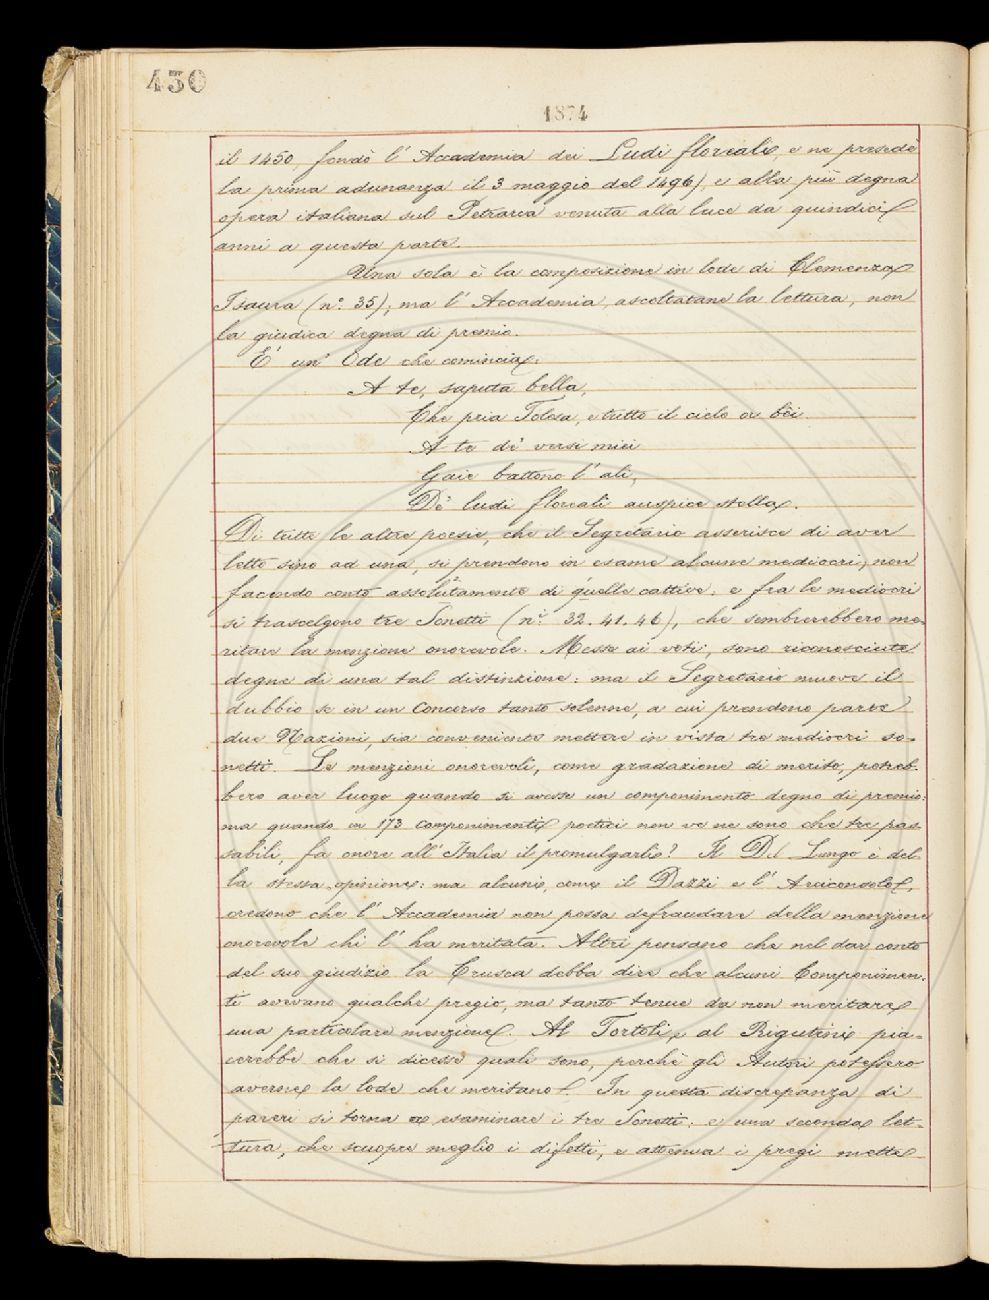 430
1874
il 1450, fondò l'Accademia dei Ludi floreali, e ne presedè
la prima adunanza il 3 maggio del 1496), e alla più degna
opera italiana sul Petrarca venuta alla luce da quindici
anni a questa parte.
Una sola è la composizione in lode di Clemenza
Isaura (n.° 35), ma l'Accademia, ascoltatane la lettura, non
la giudica degna di premio.
E' un' Ode che comincia:
A te, saputa bella,
Che pria Tolosa, e tutto il cielo or bèi
A te de' versi miei
Gaie battono l'ali,
De' ludi floreali auspice stella.
Di tutte le altre poesie, che il Segretario asserisce di aver
letto sino ad una, si prendono in esame alcune mediocri, non
facendo conto assolutamente di quelle cattive; e fra le mediocri
si trascelgono tre Sonetti (n.i 32. 41. 46), che sembrerebbero me-
ritare la menzione onorevole. Messe ai voti, sono riconosciute
degne di una tal distinzione: ma il Segretario muove il
dubbio se in un Concorso tanto solenne, a cui prendono parte
due Nazioni, sia conveniente mettere in vista tre mediocri so-
netti. Le menzioni onorevoli, come gradazione di merito, potreb-
bero aver luogo quando si avesse un componimento degno di premio:
ma quando in 173 componimenti poetici non ve ne sono che tre pas-
sabili, fa onore all'Italia il promulgarli? Il Del Lungo è del-
la stessa opinione: ma alcuni, come il Dazzi e l'Arciconsolo,
credono che l'Accademia non possa defraudare della menzione
onorevole chi l'ha meritata. Altri pensano che nel dar conto
del suo giudizio la Crusca debba dire che alcuni Componimen-
ti avevano qualche pregio, ma tanto tenue da non meritare
una particolare menzione. Al Tortoli e al Rigutini pia-
cerebbe che si dicesse quali sono, perchè gli Autori potessero
averne la lode che meritano. In questa discrepanza di
pareri si torna a esaminare i tre Sonetti: e una seconda let-
tura, che scuopre meglio i difetti, e attenua i pregi mette